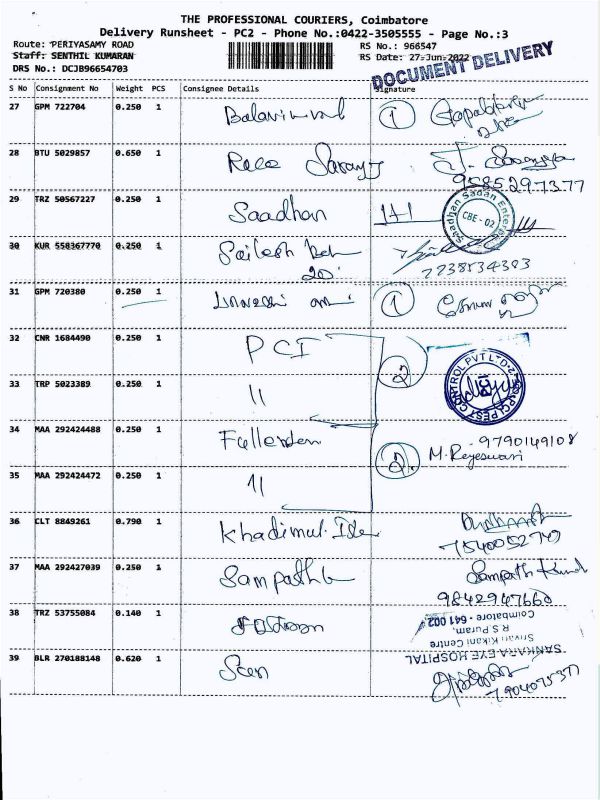 THE PROFESSIONAL COURIERS, Coimbatore
Delivery Runsheet - PC2 - Phone No.:0422-3505555 - Page No.:3
Route: PERIYASAMY ROAD
RS No.: 966547
Staff: SENTHIL KUMARAN
RS Date: 27-Jun-2022
DRS No.: DCJB96654703
DOCUMENT DELIVERY
S No Consignment No Weight PCS Consignee Details Signature
27 GPM 722704 0.250 1 1
28 BTU 5029857 0.650 1
9585297377
29 TRZ 50567227 0.250 1 Saadhan
Saadhan Sadan
CBE - 02
30 KUR 550367770 0.250 1 Sailesh
31 GPM 720380 0.250 1 1
32 CNR 1684490 0.250 1 PCI 2
33 TRP 5023389 0.250 1 11
PCI PEST CONTROL PVT LTD
34 MAA 292424488 0.250 1 2. 9790149108
35 MAA 292424472 0.250 1 11
36 CLT 8849261 0.790 1 Khadimul
7540052749
37 MAA 292427039 0.250 1 Sampath
Sampath
9842947660
38 TRZ 53755084 0.140 1
SANKARA EYE HOSPITAL
Srivari Kikani Centre
R S Puram,
Coimbatore - 641 002
39 BLR 270188148 0.620 1
7904075377